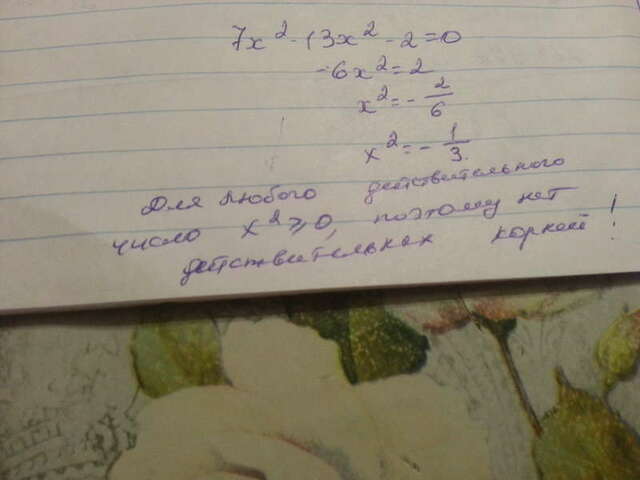 7x² - 13x² - 2 = 0
-6x² = 2
x² = - 2/6
x² = - 1/3
Для любого действительного
число x² ⩾ 0, поэтому нет
действительных корней!